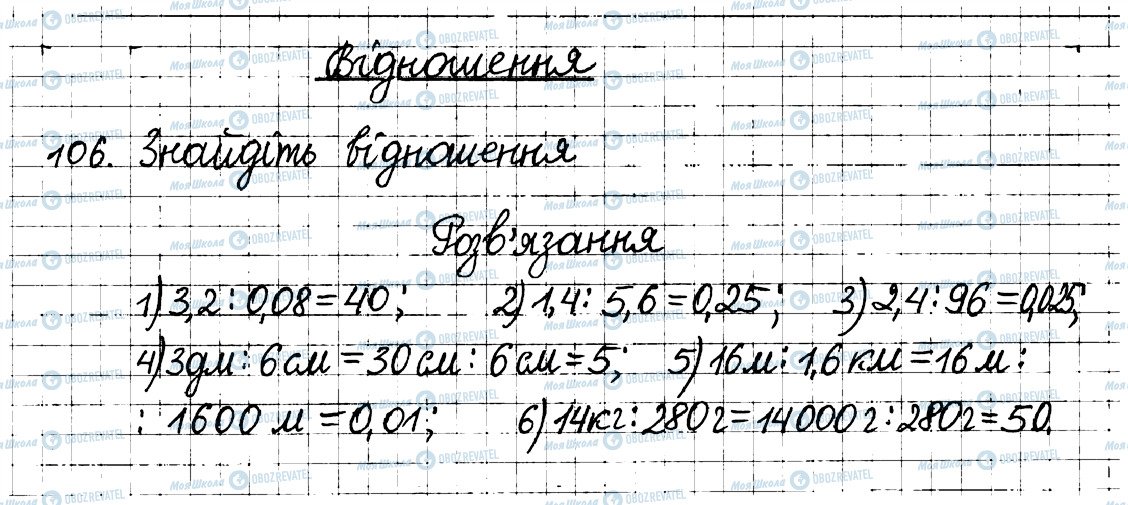 Відношення
106. Знайдіть відношення
Розв'язання
1) 3,2 : 0,08 = 40; 2) 1,4 : 5,6 = 0,25; 3) 2,4 : 96 = 0,025;
4) 3 дм : 6 см = 30 см : 6 см = 5; 5) 16 м : 1,6 км = 16 м :
: 1600 м = 0,01; 6) 14 кг : 280 г = 14000 г : 280 г = 50.